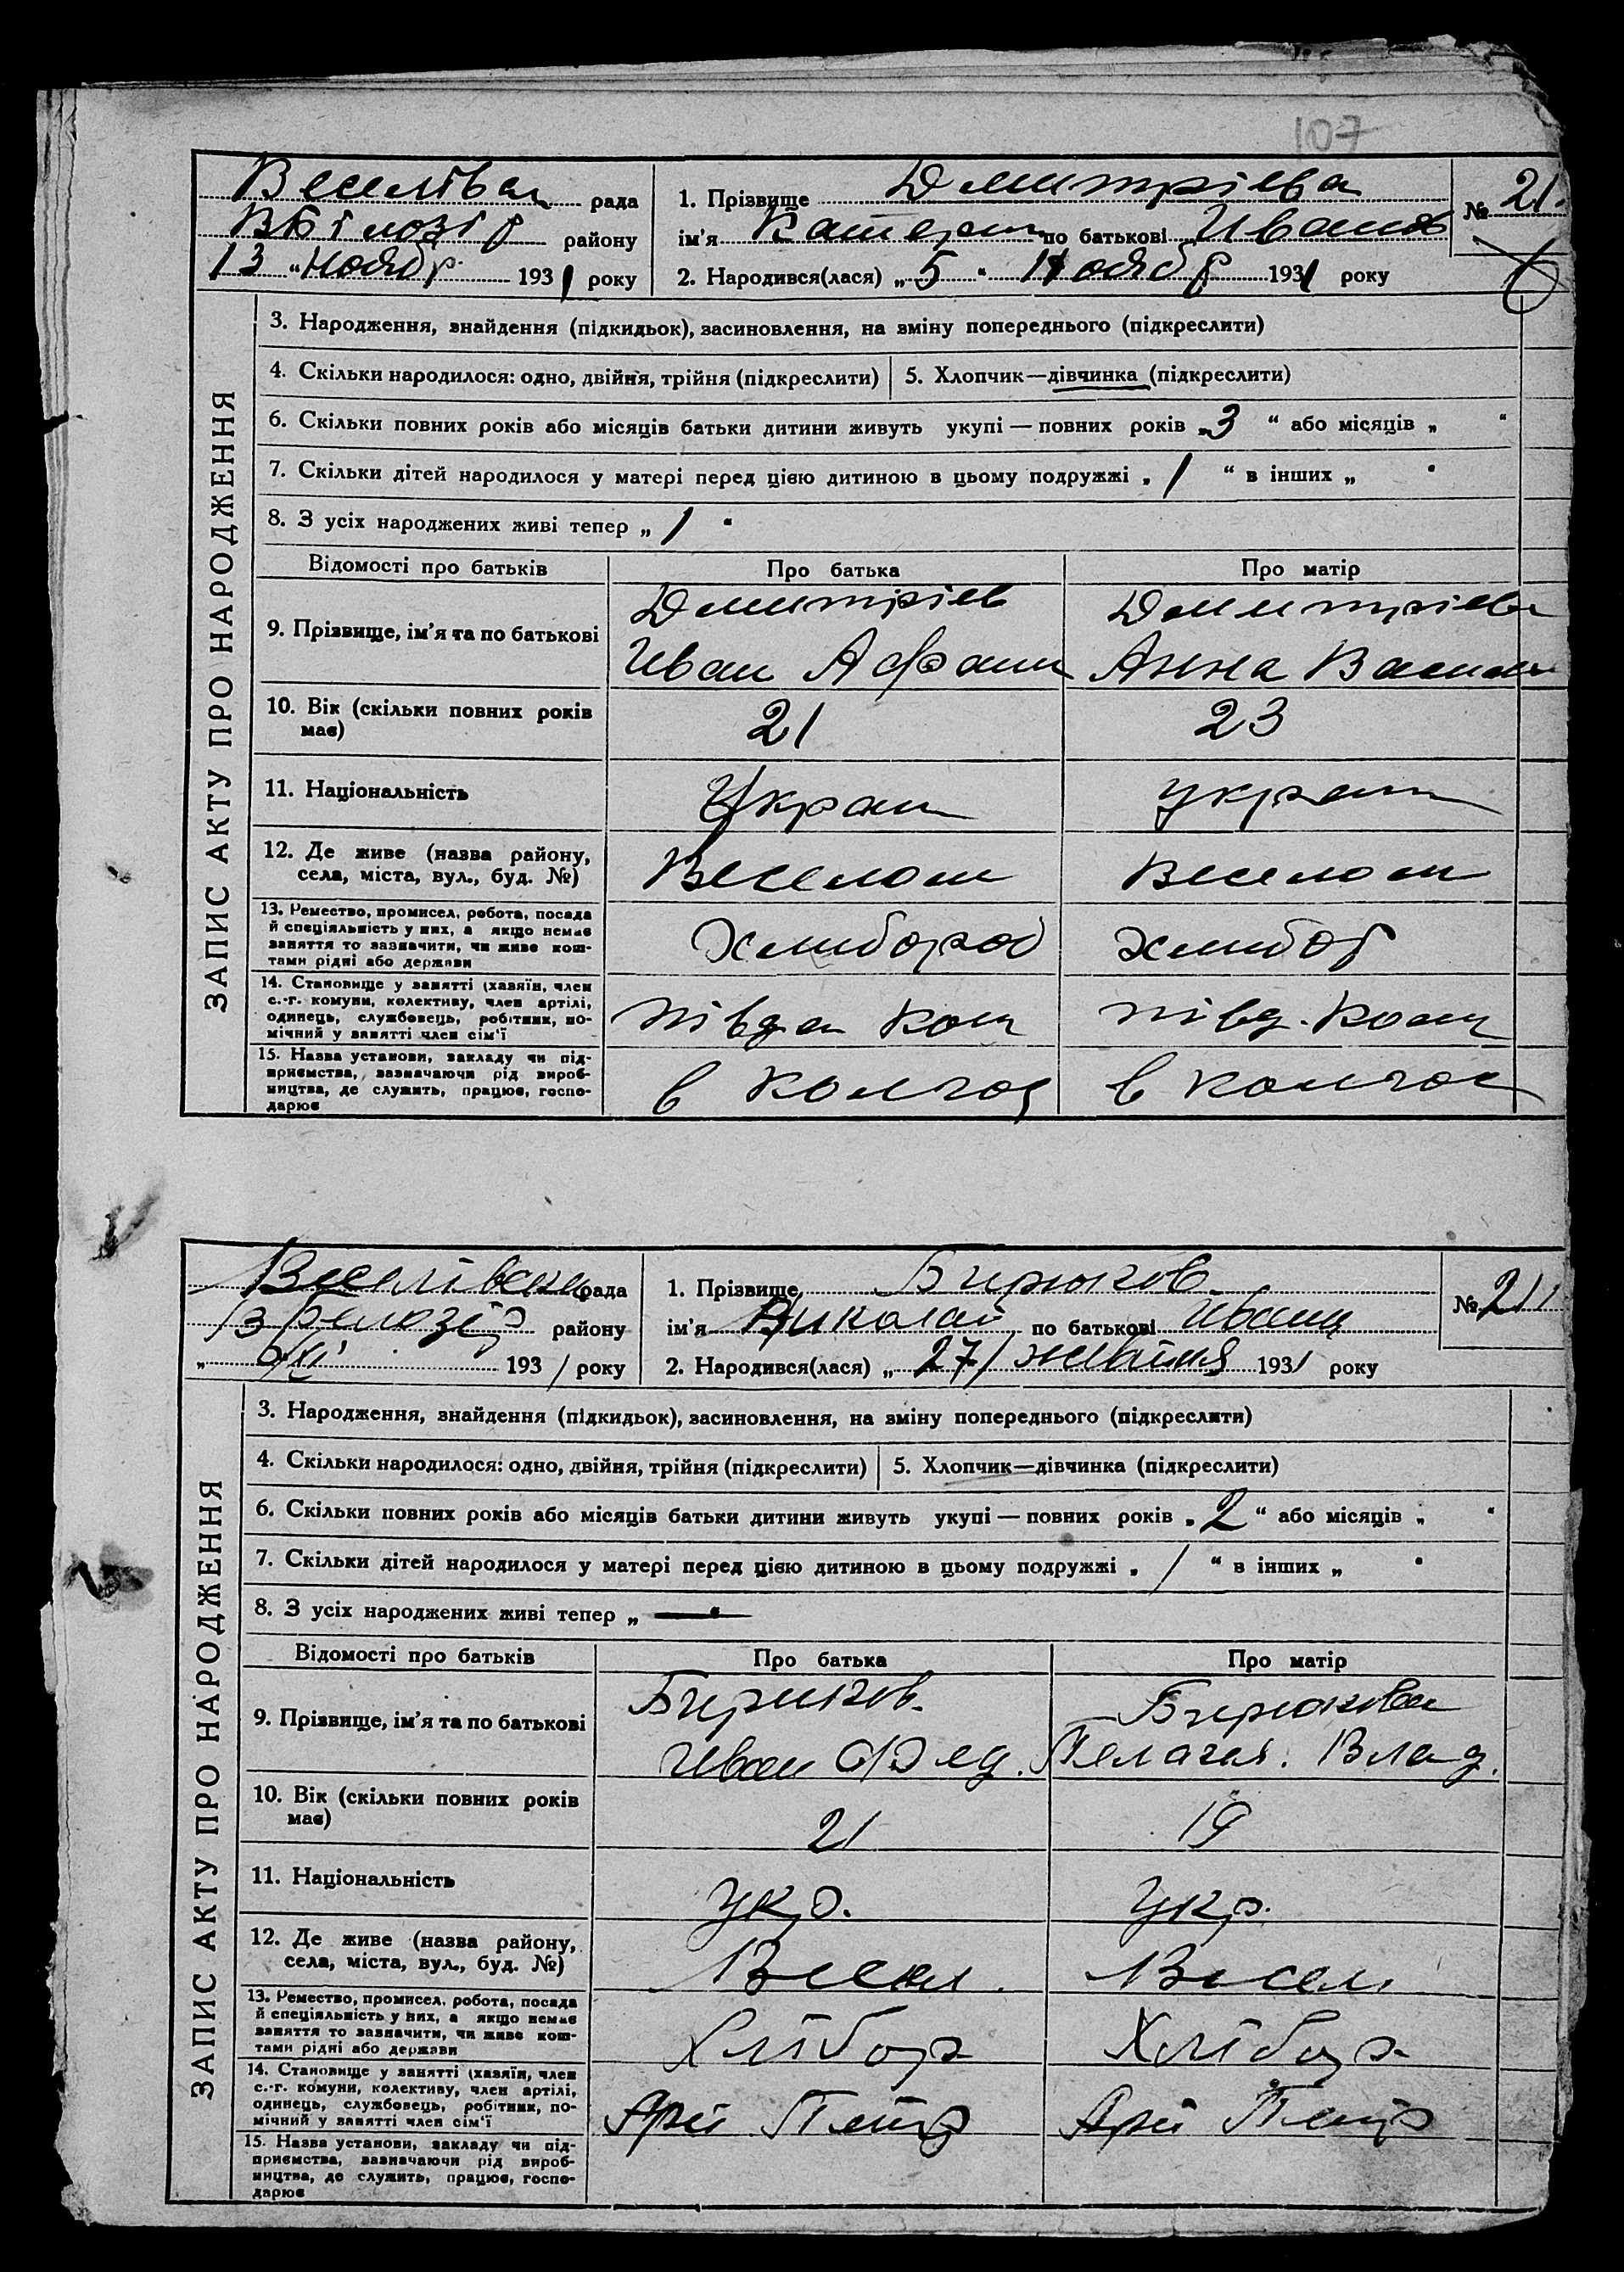 107
Веселівсь рада
1. Прізвище Дмитрієва
№ 21.
району
ім'я Катерин по батькові Иванов
13 "Ноябр. 1931 року
2. Народився(лася) „5" Ноябр 1931 року
ЗАПИС АКТУ ПРО НАРОДЖЕННЯ
3. Народження, знайдення (підкидьок), засиновлення, на зміну попереднього (підкреслити)
4. Скільки народилося: одно, двійня, трійня (підкреслити)
5. Хлопчик—дівчинка (підкреслити)
6. Скільки повних років або місяців батьки дитини живуть укупі — повних років „3" або місяців „ "
7. Скільки дітей народилося у матері перед цією дитиною в цьому подружжі „1" в інших „ "
8. З усіх народжених живі тепер „1"
Відомості про батьків
Про батька
Про матір
9. Прізвище, ім'я та по батькові
Дмитрієв
Иван Афан
Дмитрієва
Анна Васил
10. Вік (скільки повних років
має)
21
23
11. Національність
Украин
украин
12. Де живе (назва району,
села, міста, вул., буд. №)
13. Ремество, промисел, робота, посада
й спеціяльність у них, а якщо немає
заняття то зазначити, чи живе кош-
тами рідні або держави
Хлибороб
хлибор
14. Становище у занятті (хазяїн, член
с.-г. комуни, колективу, член артілі,
одинець, службовець, робітник, по-
мічний у занятті член сім'ї
15. Назва установи, закладу чи під-
приємства, зазначаючи рід вироб-
ництва, де служить, працює, госпо-
дарює
в колгос
в колгос
Веселівська рада
1. Прізвище Бирюков
№ 211
району
ім'я Николай по батькові Иванов
1931 року
2. Народився(лася) „27" жовтня 1931 року
ЗАПИС АКТУ ПРО НАРОДЖЕННЯ
3. Народження, знайдення (підкидьок), засиновлення, на зміну попереднього (підкреслити)
4. Скільки народилося: одно, двійня, трійня (підкреслити)
5. Хлопчик—дівчинка (підкреслити)
6. Скільки повних років або місяців батьки дитини живуть укупі — повних років „2" або місяців „ "
7. Скільки дітей народилося у матері перед цією дитиною в цьому подружжі „/" в інших „ "
8. З усіх народжених живі тепер „—"
Відомості про батьків
Про батька
Про матір
9. Прізвище, ім'я та по батькові
Бирюков.
Иван Фед.
Бирюкова
Пелагея. Влад.
10. Вік (скільки повних років
має)
21
19
11. Національність
Укр.
Укр.
12. Де живе (назва району,
села, міста, вул., буд. №)
Весел.
Весел.
13. Ремество, промисел, робота, посада
й спеціяльність у них, а якщо немає
заняття то зазначити, чи живе кош-
тами рідні або держави
Хлібор
Хлібор
14. Становище у занятті (хазяїн, член
с.-г. комуни, колективу, член артілі,
одинець, службовець, робітник, по-
мічний у занятті член сім'ї
15. Назва установи, закладу чи під-
приємства, зазначаючи рід вироб-
ництва, де служить, працює, госпо-
дарює